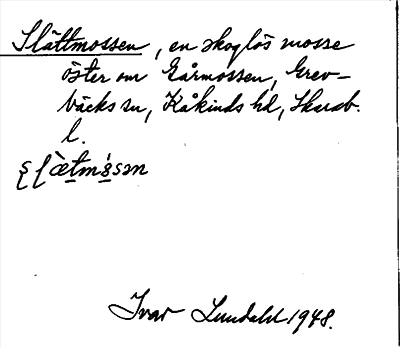 Slättmossen, en skoglös mosse
öster om Gårmossen, Grev-
bäcks sn, Kåkinds hd, Skarab.
l.
Ivar Lundahl 1948.